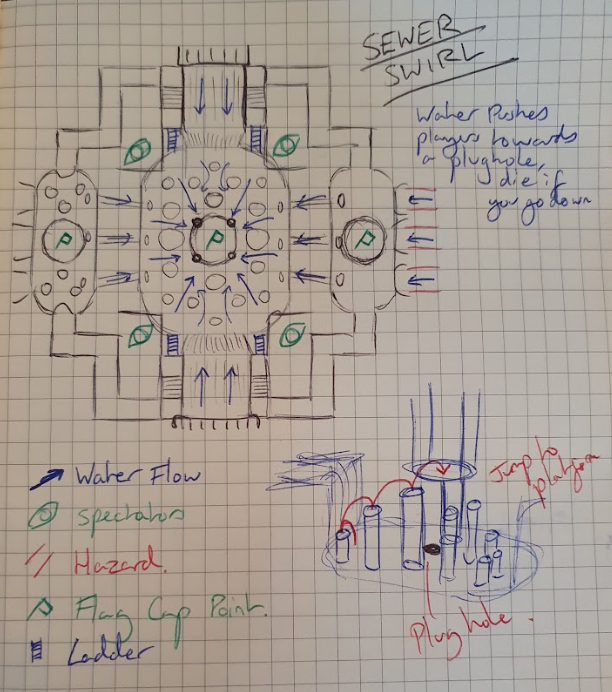 SEWER
SWIRL
Water Pushes
players towards
a plughole,
die if
you go down
P
P
P
Water Flow
Spectators
Hazard.
P Flag Cap Point.
Ladder
Jump to
platform
Plughole.